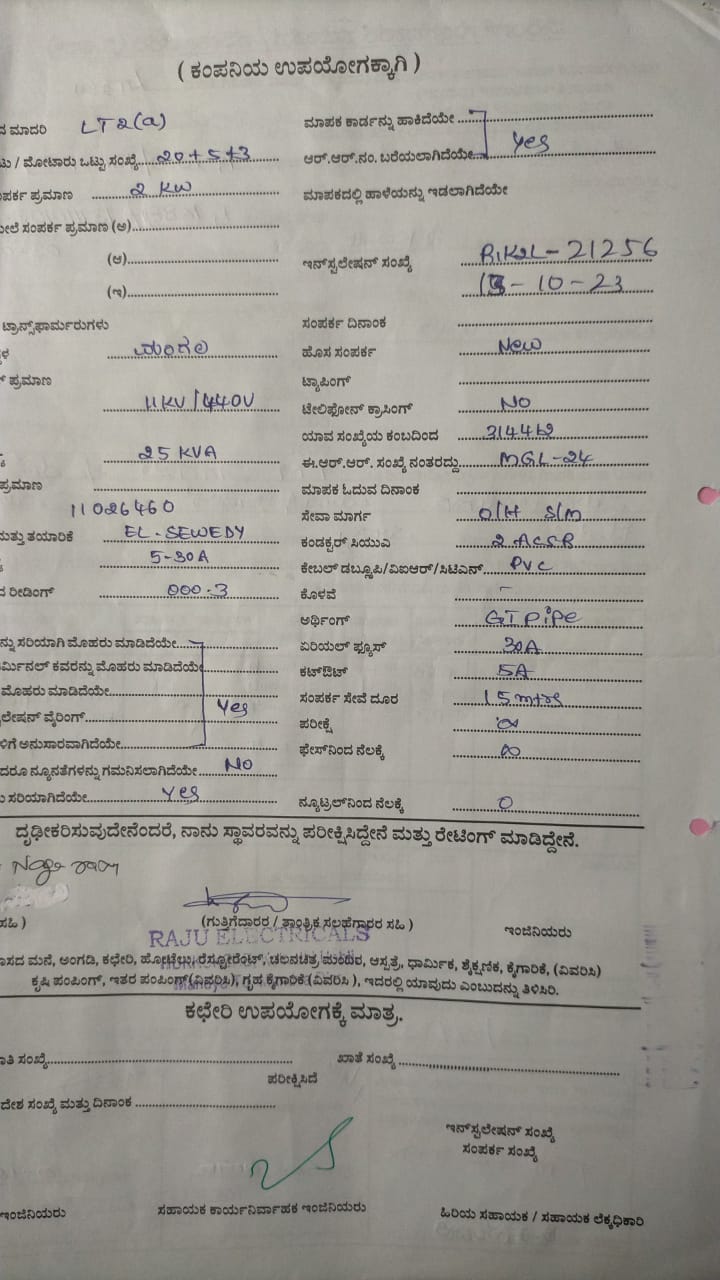 ( ಕಂಪನಿಯ ಉಪಯೋಗಕ್ಕಾಗಿ )
ದ ಮಾದರಿ LT2(a)
ಮಾಪಕ ಕಾರ್ಡನ್ನು ಹಾಕಿದೆಯೇ
ಟು / ಮೋಟಾರು ಒಟ್ಟು ಸಂಖ್ಯೆ 20+5+3
ಆರ್.ಆರ್.ನಂ. ಬರೆಯಲಾಗಿದೆಯೇ Yes
ಪರ್ಕ ಪ್ರಮಾಣ 2 KW
ಮಾಪಕದಲ್ಲಿ ಹಾಳೆಯನ್ನು ಇಡಲಾಗಿದೆಯೇ
ಮೇಲೆ ಸಂಪರ್ಕ ಪ್ರಮಾಣ (ಅ)
(ಆ)
ಇನ್‌ಸ್ಟಲೇಷನ್ ಸಂಖ್ಯೆ 21256
(ಇ)
-10-23
ಟ್ರಾನ್ಸ್‌ಫಾರ್ಮರುಗಳು
ಸಂಪರ್ಕ ದಿನಾಂಕ
ಳ ಮಂಗಲ
ಹೊಸ ಸಂಪರ್ಕ New
್ ಪ್ರಮಾಣ
ಟ್ಯಾಪಿಂಗ್
11KV/440V
ಟೇಲಿಫೋನ್ ಕ್ರಾಸಿಂಗ್ NO
ಯಾವ ಸಂಖ್ಯೆಯ ಕಂಬದಿಂದ
25 KVA
ಈ.ಆರ್.ಆರ್. ಸಂಖ್ಯೆ ನಂತರದ್ದು MGL-24
ಪ್ರಮಾಣ
ಮಾಪಕ ಓದುವ ದಿನಾಂಕ
11026460
ಸೇವಾ ಮಾರ್ಗ O/H S/M
ಮತ್ತು ತಯಾರಿಕೆ EL-SEWEDY
ಕಂಡಕ್ಟರ್ ಸಿಯುಎ 2 ACSR
5-30A
ಕೇಬಲ್ ಡಬ್ಲ್ಯೂಪಿ/ವಿಐಆರ್/ಸಿಟಿಎಸ್ PVC
ದ ರೀಡಿಂಗ್ 000.3
ಕೊಳವೆ -
ಅರ್ಥಿಂಗ್ GI Pipe
ನ್ನು ಸರಿಯಾಗಿ ಮೊಹರು ಮಾಡಿದೆಯೇ
ಏರಿಯಲ್ ಫ್ಯೂಸ್ 30A
ರ್ಮಿನಲ್ ಕವರನ್ನು ಮೊಹರು ಮಾಡಿದೆಯೇ
ಕಟ್‌ಔಟ್ 5A
ಮೊಹರು ಮಾಡಿದೆಯೇ Yes
ಸಂಪರ್ಕ ಸೇವೆ ದೂರ 15mtrs
ಲೇಷನ್ ವೈರಿಂಗ್
ಪರೀಕ್ಷೆ ∞
ಳಿಗೆ ಅನುಸಾರವಾಗಿದೆಯೇ
ಫೇಸ್‌ನಿಂದ ನೆಲಕ್ಕೆ ∞
ದರೂ ನ್ಯೂನತೆಗಳನ್ನು ಗಮನಿಸಲಾಗಿದೆಯೇ NO
ು ಸರಿಯಾಗಿದೆಯೇ Yes
ನ್ಯೂಟ್ರಲ್‌ನಿಂದ ನೆಲಕ್ಕೆ 0
ದೃಢೀಕರಿಸುವುದೇನೆಂದರೆ, ನಾನು ಸ್ಥಾವರವನ್ನು ಪರೀಕ್ಷಿಸಿದ್ದೇನೆ ಮತ್ತು ರೇಟಿಂಗ್ ಮಾಡಿದ್ದೇನೆ.
ಸಹಿ )
(ಗುತ್ತಿಗೆದಾರರ / ತಾಂತ್ರಿಕ ಸಲಹೆಗಾರರ ಸಹಿ )
ಇಂಜಿನಿಯರು
RAJU ELECTRICALS
ಾಸದ ಮನೆ, ಅಂಗಡಿ, ಕಛೇರಿ, ಹೋಟೆಲು, ರೆಸ್ಟೋರೆಂಟ್, ಚಲನಚಿತ್ರ ಮಂದಿರ, ಆಸ್ಪತ್ರೆ, ಧಾರ್ಮಿಕ, ಶೈಕ್ಷಣಿಕ, ಕೈಗಾರಿಕೆ, (ವಿವರಿಸಿ)
ಕೃಷಿ ಪಂಪಿಂಗ್, ಇತರ ಪಂಪಿಂಗ್ (ವಿವರಿಸಿ), ಗೃಹ ಕೈಗಾರಿಕೆ (ವಿವರಿಸಿ ), ಇದರಲ್ಲಿ ಯಾವುದು ಎಂಬುದನ್ನು ತಿಳಿಸಿರಿ.
ಕಛೇರಿ ಉಪಯೋಗಕ್ಕೆ ಮಾತ್ರ.
ಾತಿ ಸಂಖ್ಯೆ
ಖಾತೆ ಸಂಖ್ಯೆ
ಪರೀಕ್ಷಿಸಿದೆ
ದೇಶ ಸಂಖ್ಯೆ ಮತ್ತು ದಿನಾಂಕ
ಇನ್‌ಸ್ಟಲೇಷನ್ ಸಂಖ್ಯೆ
ಸಂಪರ್ಕ ಸಂಖ್ಯೆ
ಇಂಜಿನಿಯರು
ಸಹಾಯಕ ಕಾರ್ಯನಿರ್ವಾಹಕ ಇಂಜಿನಿಯರು
ಹಿರಿಯ ಸಹಾಯಕ / ಸಹಾಯಕ ಲೆಕ್ಕಧಿಕಾರಿ